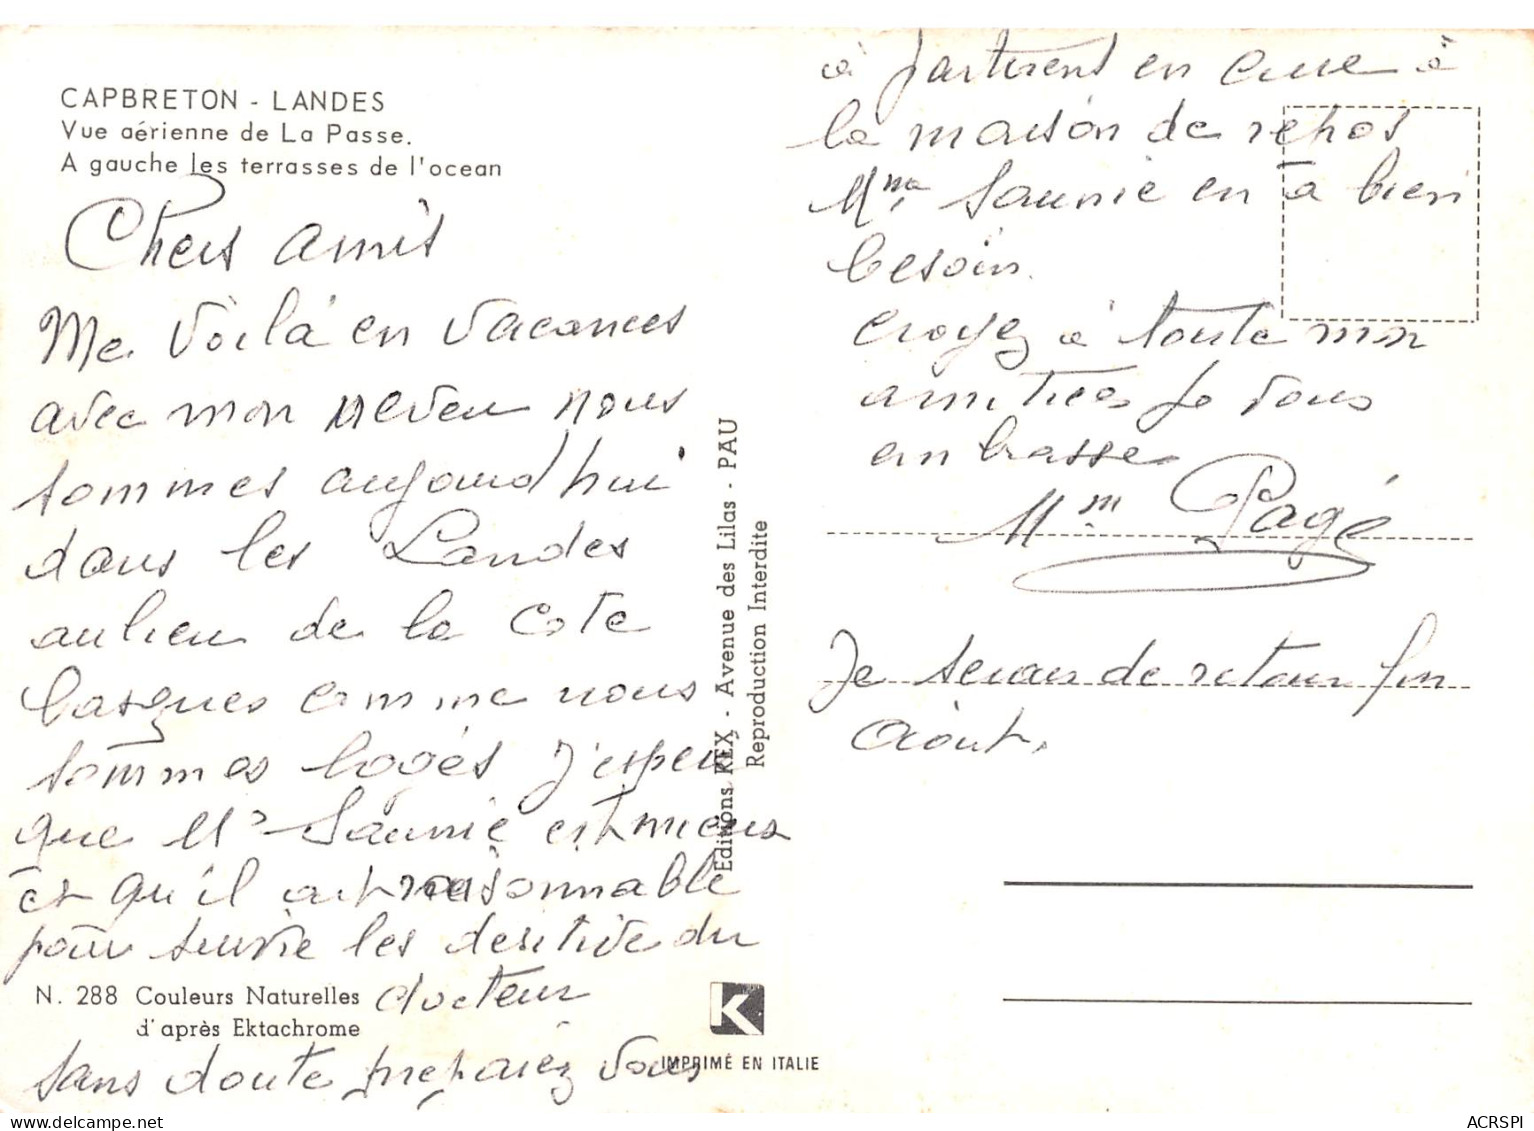 CAPBRETON - LANDES
Vue aérienne de La Passe.
A gauche les terrasses de l'ocean
Chers amis
Me voilà en vacances
avec mon neveu nous
sommes aujourd'hui
dans les Landes
au lieu de la Cote
basques comme nous
sommes logés J'esper
que Mr Saunié est mieux
et qu'il est raisonnable
pour suivre les du
docteur
sans doute préparez vous
N. 288 Couleurs Naturelles
d'après Ektachrome
Editions KEX - Avenue des Lilas - PAU
Reproduction Interdite
K
IMPRIMÉ EN ITALIE
à partirent en cure à
la maison de repos
Mme Saunié en a bien
besoin.
croyez à toute mon
amitiées Je vous
embrasse
Mm Pagé
Je serais de retour fin
août.
ACRSPI